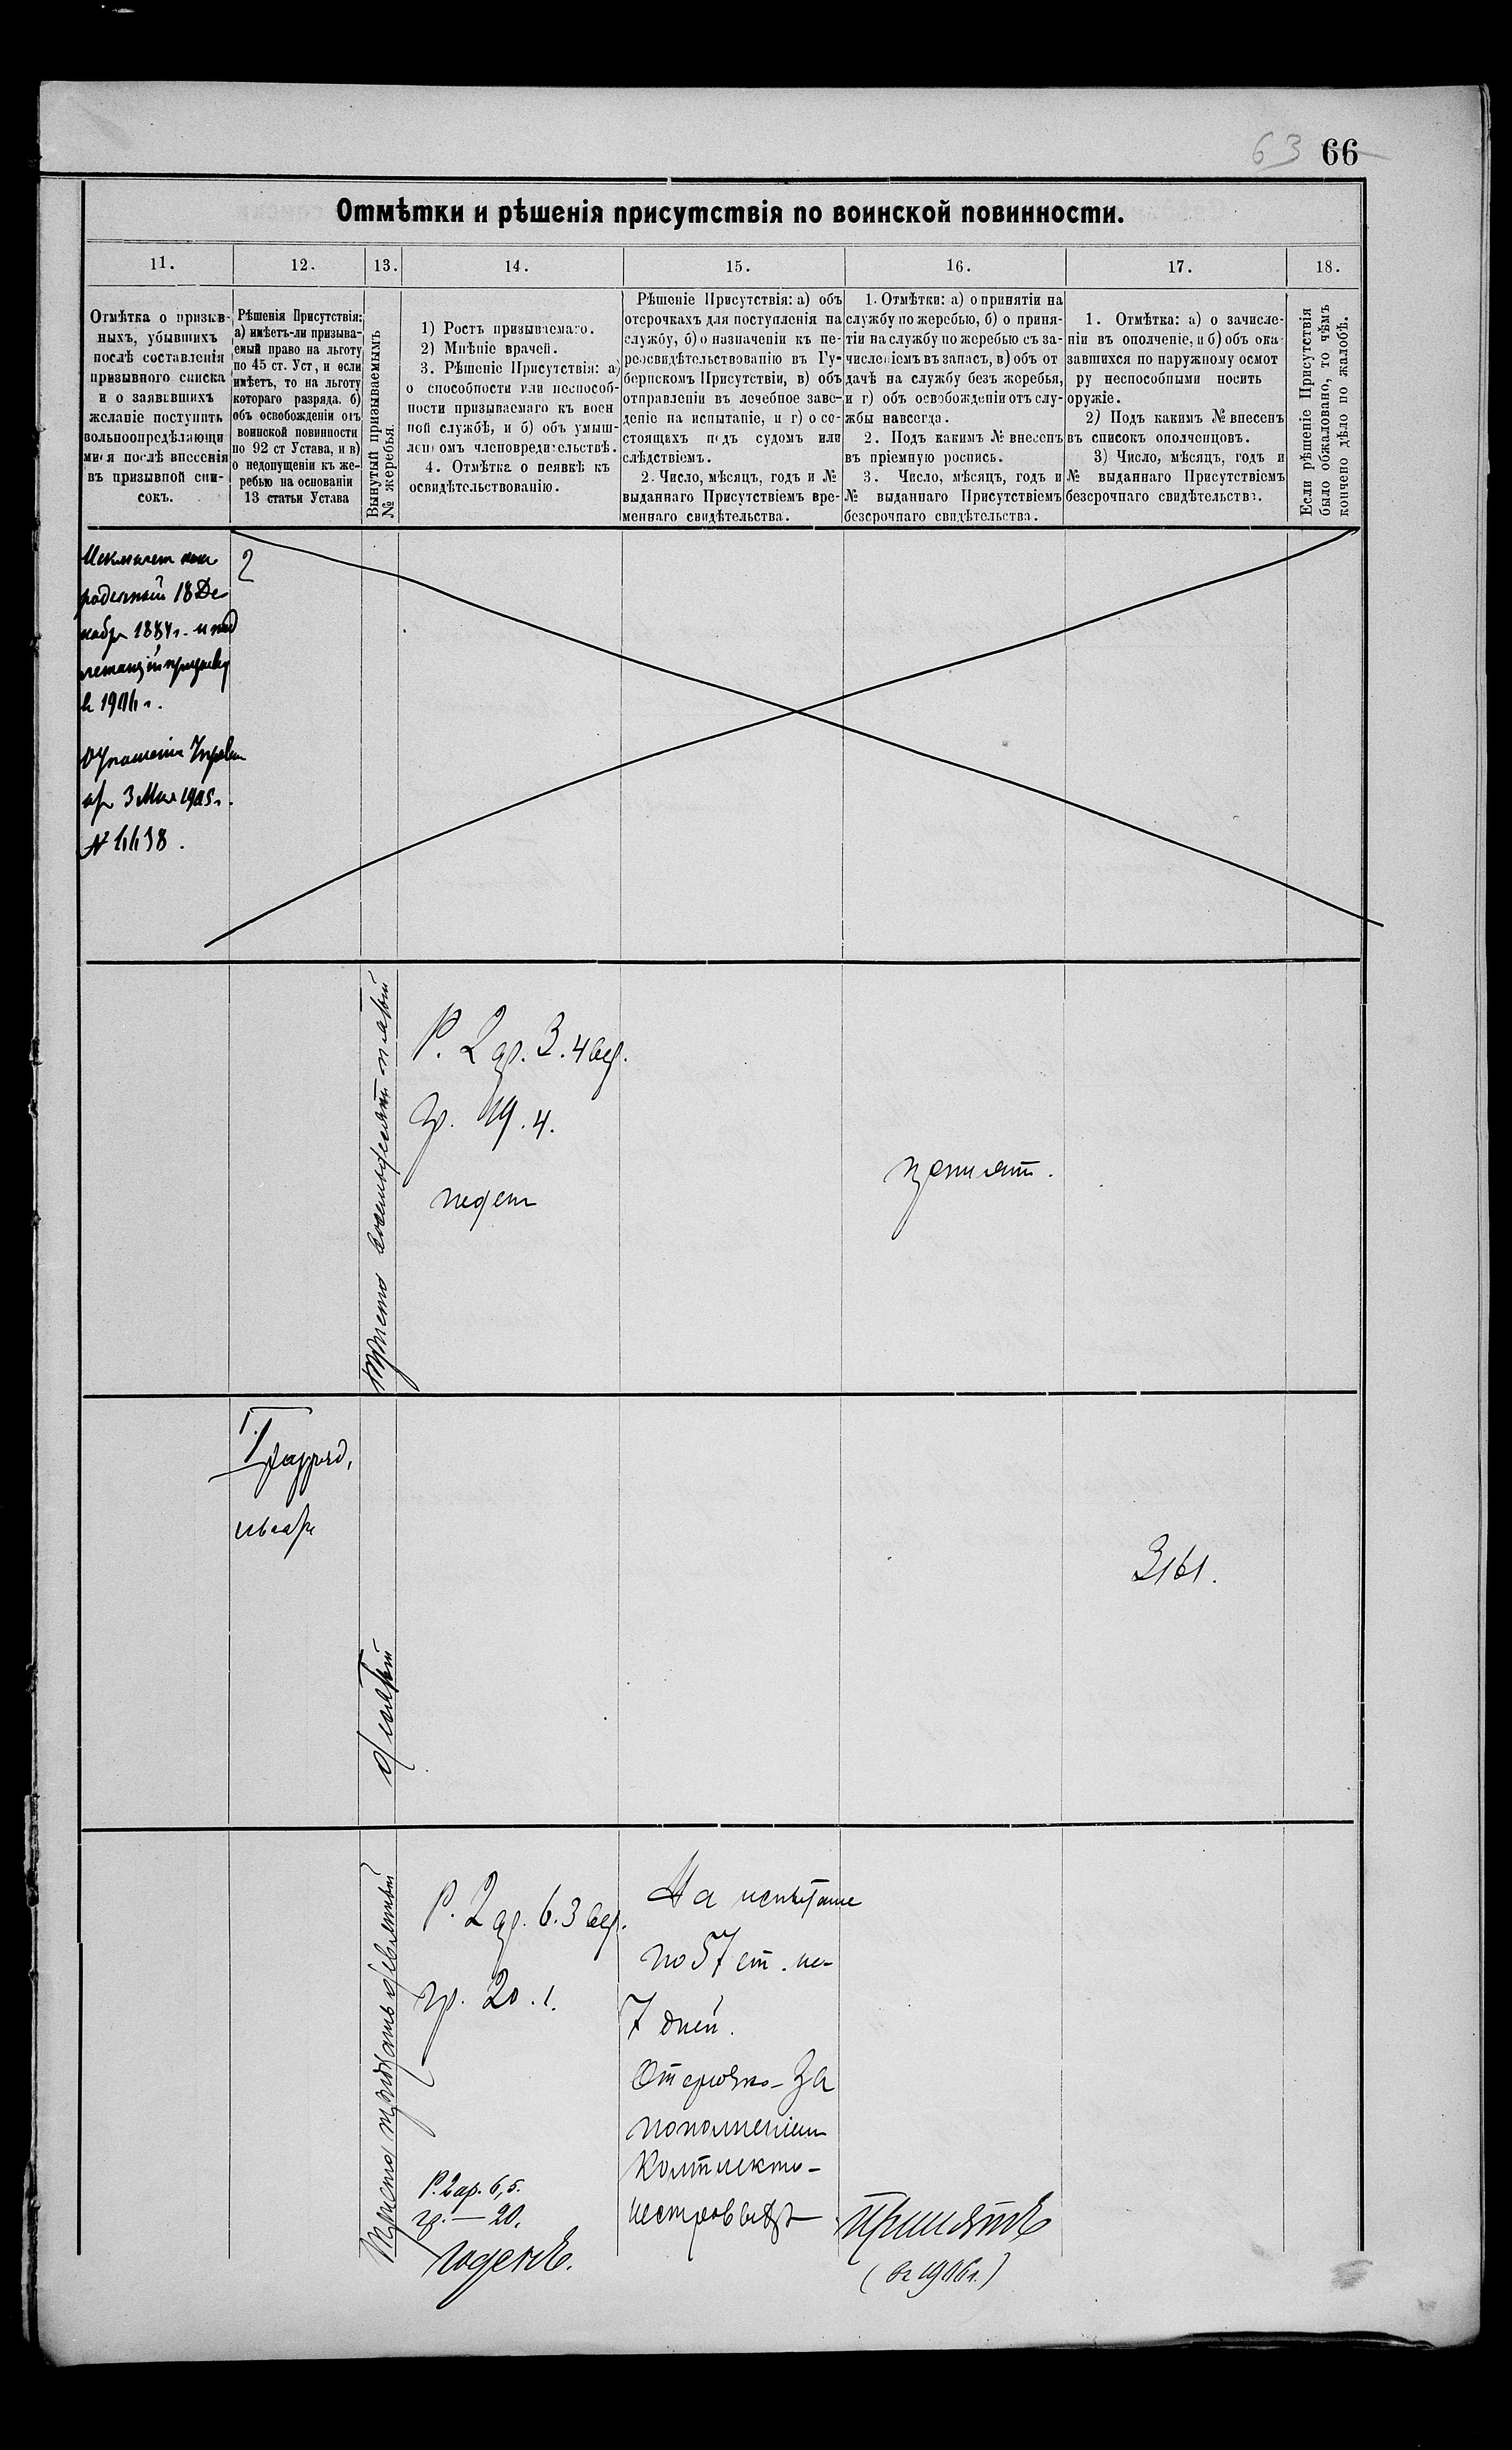 63 66
Отмѣтки и рѣшенія присутствія по воинской повинности.
11. 12. 13. 14. 15. 16. 17. 18.
Отмѣтка о призыв-
ныхъ, убывшихъ
послѣ составленія
призывного списка
и о заявившихъ
желаніе поступить
вольноопредѣляющи
мися послѣ внесенія
въ призывной спи-
сокъ.
Рѣшенія Присутствія:
а) имѣетъ-ли призыва-
емый право на льготу
по 45 ст. Уст, и если
имѣетъ, то на льготу
котораго разряда. б)
объ освобожденіи отъ
воинской повинности
по 92 ст Устава, и в)
о недопущеніи къ же-
ребью на основаніи
13 статьи Устава
Вынутый призываемымъ
№ жеребья.
1) Ростъ призываемаго.
2) Мнѣніе врачей.
3. Рѣшеніе Присутствія: а)
о способности или неспособ-
ности призываемаго къ воен
ной службѣ, и б) объ умыш-
леномъ членовредительствѣ.
4. Отмѣтка о неявкѣ къ
освидѣтельствованію.
Рѣшеніе Присутствія: а) объ
отсрочкахъ для поступленія на
службу, б) о назначеніи къ пе-
реосвидѣтельствованію въ Гу-
бернскомъ Присутствіи, в) объ
отправленіи въ лечебное заве-
деніе на испытаніе, и г) о со-
стоящихъ подъ судомъ или
слѣдствіемъ.
2. Число, мѣсяцъ, годъ и №
выданнаго Присутствіемъ вре-
меннаго свидѣтельства.
1. Отмѣтки: а) о принятіи на
службу по жеребью, б) о приня-
тіи на службу по жеребью съ за-
численіемъ въ запасъ, в) объ от
дачѣ на службу безъ жеребья,
и г) объ освобожденіи отъ слу-
жбы навсегда.
2. Подъ какимъ № внесенъ
въ пріемную роспись.
3. Число, мѣсяцъ, годъ и
№ выданнаго Присутствіемъ
безсрочнаго свидѣтельства.
1. Отмѣтка: а) о зачисле-
ніи въ ополченіе, и б) объ ока
завшихся по наружному осмот
ру неспособными носить
оружіе.
2) Подъ какимъ № внесенъ
въ список ополченцовъ.
3) Число, мѣсяцъ, годъ и
№ выданнаго Присутствіемъ
безсрочнаго свидѣтельства.
Если рѣшеніе Присутствія
было обжаловано, то чѣмъ
кончено дѣло по жалобѣ.
18 Де
кабр 1884г.
1906г.
3 Мая 1905г.
Триста восемьдесят пятый
Р. 2 ар. 3.4 вер.
гр. 19.4.
годен
принят.
разряд,
девятый
3161.
Триста тридцать девятый
Р. 2 ар. 6.3 вер.
гр. 20.1.
Р. 2 ар. 6,5.
гр. — 20.
годенъ.
На испытание
по 57 ст. на
7 дней.
Отсрочка за
пополнением
комплекта
Принятъ
(в 1906г.)